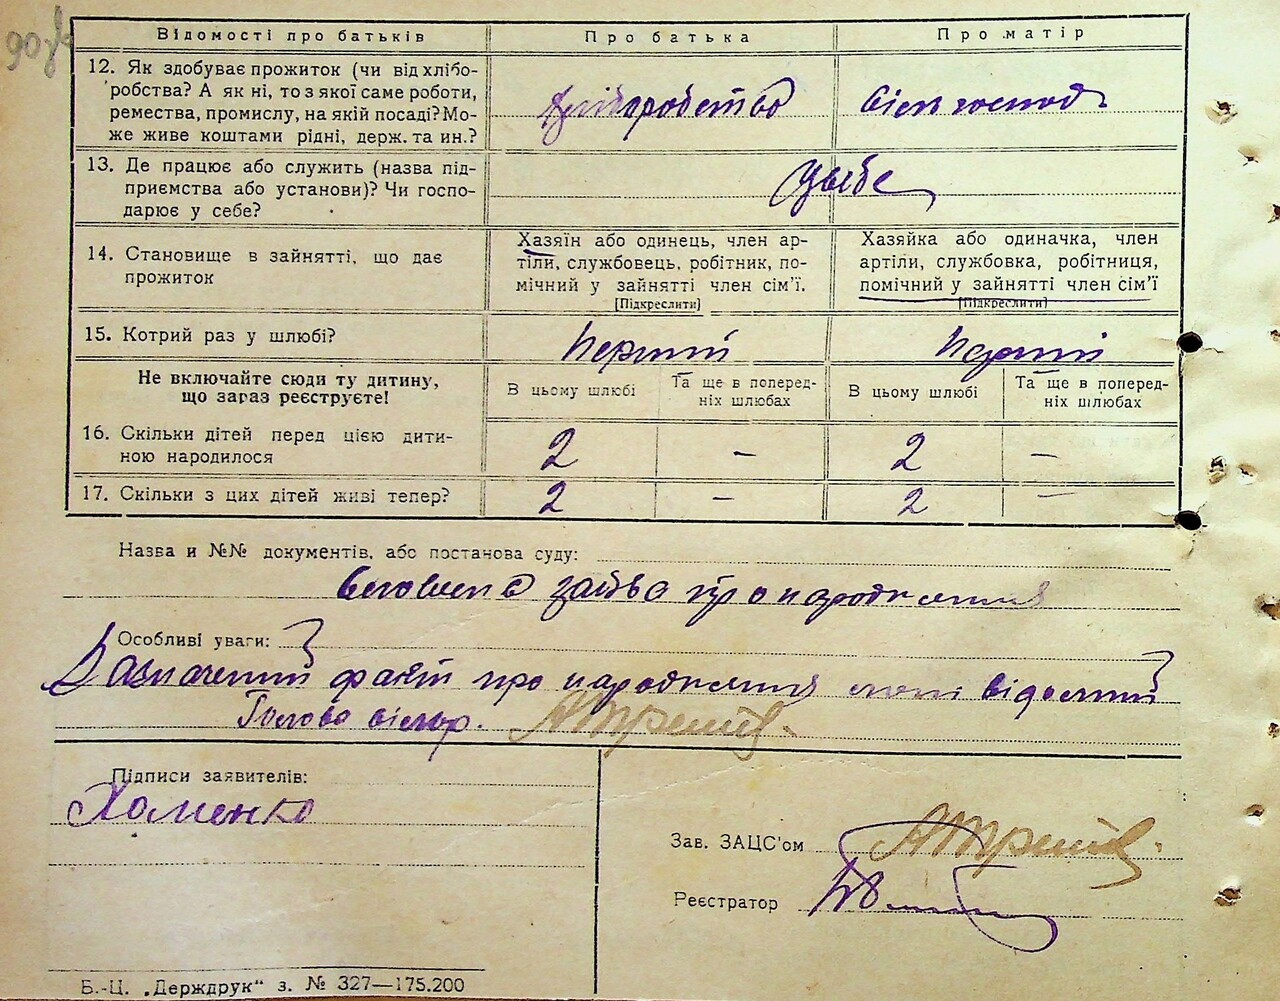 90
Відомості про батьків
Про батька
Про матір
12. Як здобуває прожиток (чи від хлібо-
робства? А як ні, то з якої саме роботи,
ремества, промислу, на якій посаді? Мо-
же живе коштами рідні, держ. та ин.?
хліборобство
сільгоспод
13. Де працює або служить (назва під-
приємства або установи)? Чи госпо-
дарює у себе?
у себе
14. Становище в зайнятті, що дає
прожиток
Хазяїн або одинець, член ар-
тіли, службовець, робітник, по-
мічний у зайнятті член сім'ї.
[Підкреслити]
Хазяйка або одиначка, член
артіли, службовка, робітниця,
помічний у зайнятті член сім'ї
[Підкреслити]
15. Котрий раз у шлюбі?
перший
перший
Не включайте сюди ту дитину,
що зараз реєструєте!
В цьому шлюбі
Та ще в поперед-
ніх шлюбах
В цьому шлюбі
Та ще в поперед-
ніх шлюбах
16. Скільки дітей перед цією дити-
ною народилося
2 – 2 –
17. Скільки з цих дітей живі тепер?
2 – 2 –
Назва и №№ документів, або постанова суду:
словесна заява про народження
Особливі уваги:
Зазначений факт про народження мені відомий
Голова сільр.
Підписи заявителів:
Хоменко
Зав. ЗАЦС'ом
Реєстратор
Б.-Ц. „Держдрук" з. № 327—175.200